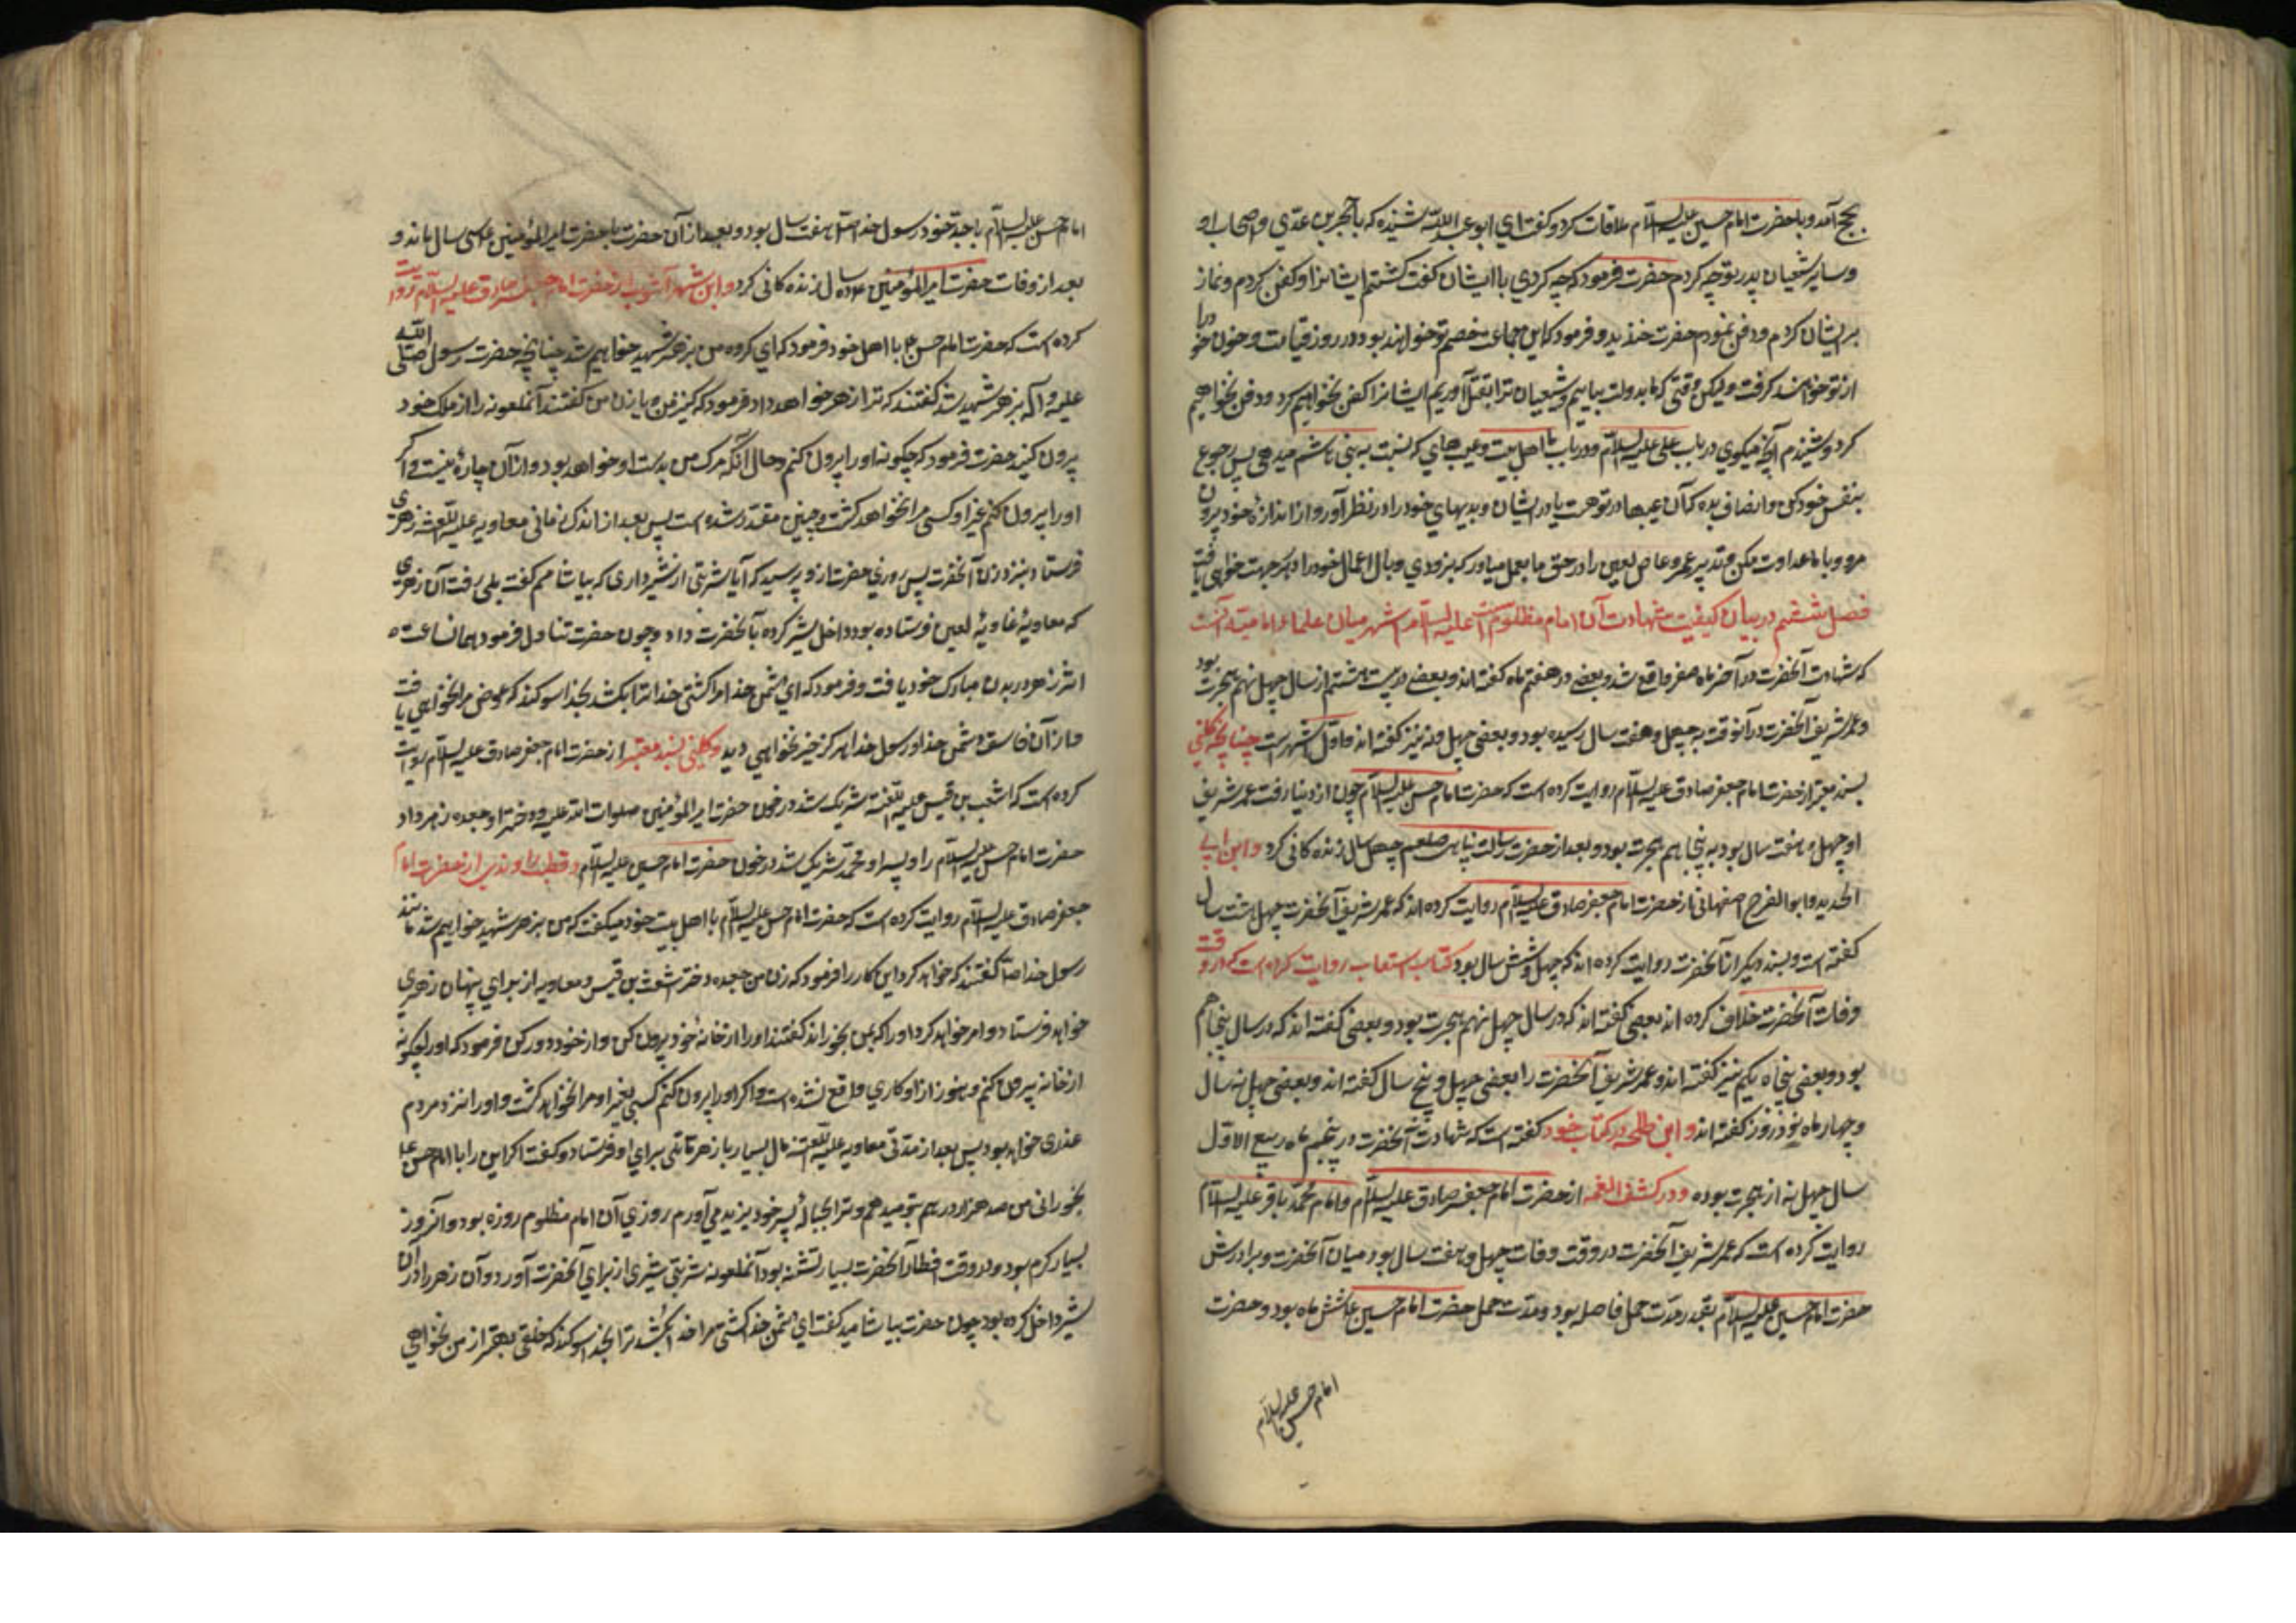 بحج آمد و با حضرت امام حسین علیه السلام ملاقات کرد و گفت ای ابو عبد الله شنیده که با حجر بن عدی و اصحاب او
و سایر شیعیان پدر تو چه کردم حضرت فرمود که چه کردی با ایشان گفت کشتم ایشانرا و کفن کردم و نماز
بر ایشان کردم و دفن نمودم حضرت خندید و فرمود که این جماعت خصم تو خواهند بود در روز قیامت و خون خود را
از تو خواهند گرفت ولیکن وقتی که ما بدولت بیاییم و شیعیان ترا بقتل آوریم ایشانرا کفن نخواهیم کرد و دفن نخواهیم
کرد و شنیدم آنچه میگوی در باب علی علیه السلام و در باب ما اهل بیت و عیب های که نسبت به بنی هاشم میدهی پس رجوع
بنفس خود کن و انصاف بده که آن عیبها در تو هست یا در ایشان و بدیهای خود را در نظر آور و از اندازهٔ خود بیرون
مرو و با ما عداوت مکن و تدبیر عمرو عاص لعین را در حق ما بعمل میاور که بزودی وبال اعمال خود را از جهت خواهی یافت
فصل ششم در بیان کیفیت شهادت آن امام مظلوم است علیه السلام اشهر میان علماء امامیه آنست
که شهادت آنحضرت در آخر ماه صفر واقع شد و بعضی در هفتم ماه گفته اند و بعضی در بیست هشتم از سال چهل نهم هجرت بود
و عمر شریف آنحضرت در آنوقت بچهل و هفت سال رسیده بود و بعضی چهل و نه نیز گفته اند و اول اشهر است چنانچه کلینی
بسند معتبر از حضرت امام جعفر صادق علیه السلام روایت کرده است که حضرت امام حسن علیه السلام چون از دنیا رفت عمر شریف
او چهل و هفت سال بود به پنجاهم هجرت بود و بعد از حضرت رسالت پناهی صلعم چهل سال زنده کانی کرد و ابن ابی
الحدید و ابو الفرج اصفهانی از حضرت امام جعفر صادق علیه السلام روایت کرده اند که عمر شریف آنحضرت چهل هشت سال
گفته است و بسند دیگر از آنحضرت روایت کرده اند که چهل و شش سال بود کتاب استیعاب روایت کرده است که در وقت
وفات آنحضرت خلاف کرده اند بعضی گفته اند که در سال چهل نهم هجرت بود و بعضی گفته اند که در سال پنجاهم
بود و بعضی پنجاه یکم نیز گفته اند و عمر شریف آنحضرت را بعضی چهل و پنج سال گفته اند و بعضی چهل نه سال
و چهار ماه نوزده روز گفته اند و ابن طلحه در کتاب خود گفته است که شهادت آنحضرت در پنجم ماه ربیع الاول
سال چهل نه از هجرت بوده و در کشف الغمه از حضرت امام جعفر صادق علیه السلام و امام محمد باقر علیه السلام
روایت کرده است که عمر شریف آنحضرت در وقت وفات چهل و هفت سال بود میان آنحضرت و برادرش
حضرت امام حسین علیه السلام بقدر مدت حمل فاصله بود و مدت حمل حضرت امام حسین ع شش ماه بود و حضرت
امام حسن علیه السلام
امام حسن علیه السلام با جد خود رسول خدا صلی هفت سال بود و بعد از آن حضرت با حضرت امیر المؤمنین ع سی سال ماند و
بعد از وفات حضرت امیر المؤمنین ع ده سال زنده کانی کرد و ابن شهر آشوب از حضرت امام جعفر صادق علیه السلام روایت
کرده است که حضرت امام حسن ع با اهل خود فرمود که ای گروه من بزهر شهید خواهم شد چنانچه حضرت رسول صلی الله
علیه و آله بزهر شهید شد گفتند که ترا زهر خواهد داد فرمود که کنیز من و یا زن من گفتند آنملعونه را از ملک خود
بیرون کنید حضرت فرمود که چگونه او را بیرون کنم و حال آنکه مرگ من بدست او خواهد بود و از آن چارهٔ نیست و اگر
او را بیرون کنم غیر او کسی مرا نخواهد کشت و چنین مقدر شده است پس بعد از اندک زمانی معاویه علیه اللعنه زهری
فرستاد بنزد زن آنحضرت پس روزی حضرت از و پرسید که آیا شربتی از شیر داری که بیاشامم گفت بلی رفت آن زهری
که معاویهٔ غاویهٔ لعین فرستاده بود داخل شیر کرده بآنحضرت داد و چون حضرت تناول فرمود همان ساعت
اثر زهر در بدن مبارک خود یافت و فرمود که ای دشمن خدا مرا کشتی خدا ترا بکشد بخدا سوگند که عوض مرا نخواهی یافت
و از آن فاسق دشمن خدا و رسول خدا هرگز خیر نخواهی دید و کلینی بسند معتبر از حضرت امام جعفر صادق علیه السلام روایت
کرده است که اشعب بن قیس علیه اللعنه شریک شد در خون حضرت امیر المؤمنین صلوات الله علیه و دختر او جعده زهر داد
حضرت امام حسن علیه السلام را و پسر او محمد شریک شد در خون حضرت امام حسین علیه السلام و قطب راوندی از حضرت امام
جعفر صادق علیه السلام روایت کرده است که حضرت امام حسن علیه السلام با اهل بیت خود میگفت که من بزهر شهید خواهم شد مانند
رسول خدا ص گفتند که خواهد کرد این کار را فرمود که زن من جعده دختر اشعث بن قیس و معاویه از برای پنهان زهری
خواهد فرستاد و امر خواهد کرد او را که بمن بخوراند گفتند او را از خانهٔ خود بیرون کن و از خود دور کن فرمود که او را چگونه
از خانه بیرون کنم و هنوز از او کاری واقع نشده است و اگر او را بیرون کنم کسی بغیر او مرا نخواهد کشت و او را نزد مردم
عذری خواهد بود پس بعد از مدتی معاویه علیه اللعنه مال بسیار با زهر قاتلی برای او فرستاد و گفت اگر این را با امام حسن ع
بخورانی من صد هزار درهم بتو میدهم و ترا بحبالهٔ پسر خود یزید می آورم روزی آن امام مظلوم روزه بود و آنروز
بسیار گرم بود و در وقت افطار آنحضرت بسیار تشنه بود آنملعونه شربتی شیری از برای آنحضرت آورد و آن زهر را در آن
شیر داخل کرده بود چون حضرت بیاشامید گفت ای دشمن خدا کشتی مرا خدا بکشد ترا بخدا سوگند که خلقی بهتر از من نخواهی